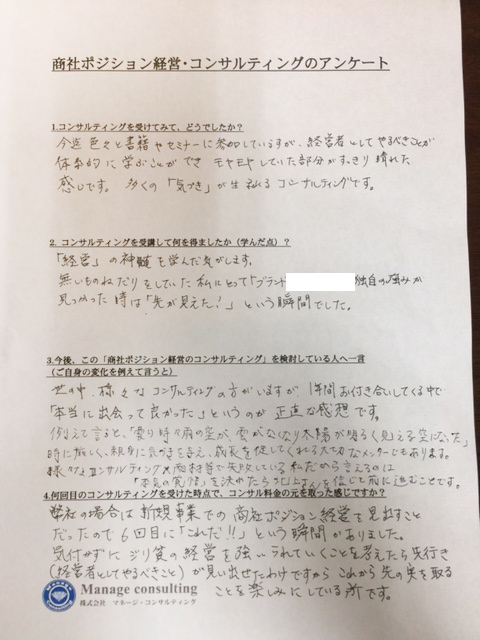 商社ポジション経営・コンサルティングのアンケート
1.コンサルティングを受けてみて、どうでしたか？
今迄色々と書籍やセミナーに参加していますが、経営者としてやるべきことが
体系的に学ぶことができ モヤモヤしていた部分がすっきり晴れた
感じです。 多くの「気づき」が生まれるコンサルティングです。
2. コンサルティングを受講して何を得ましたか（学んだ点）？
「経営」の神髄を学んだ気がします。
無いものねだりをしていた私にとって「ブランド 独自の強みが
見つかった時は「先が見えた！」という瞬間でした。
3.今後、この「商社ポジション経営のコンサルティング」を検討している人へ一言
（ご自身の変化を例えて言うと）
世の中、様々なコンサルティングの方がいますが、1年間お付き合いしてくる中で
「本当に出会って良かった」というのが正直な感想です。
例えて言うと、「曇り時々雨の空が、雲がなくなり太陽が明るく見える空になった」
時に厳しく、親身に気持を支え、成長を促してくれる大切なメンターでもあります。
様々なコンサルティングや商材等で失敗している私だから言えるのは
「本気の覚悟」を決めたら さんを信じて前に進むことです。
4.何回目のコンサルティングを受けた時点で、コンサル料金の元を取った感じですか？
弊社の場合は新規事業での商社ポジション経営を見出すこと
だったので6回目に「これだ!!」という瞬間がありました。
気付かずにジリ貧の経営を強いられていくことを考えたら先行き
（経営者としてやるべきこと）が見い出せたわけですから これから先の実を取る
ことを楽しみにしている所です。
Manage consulting
株式会社 マネージ・コンサルティング